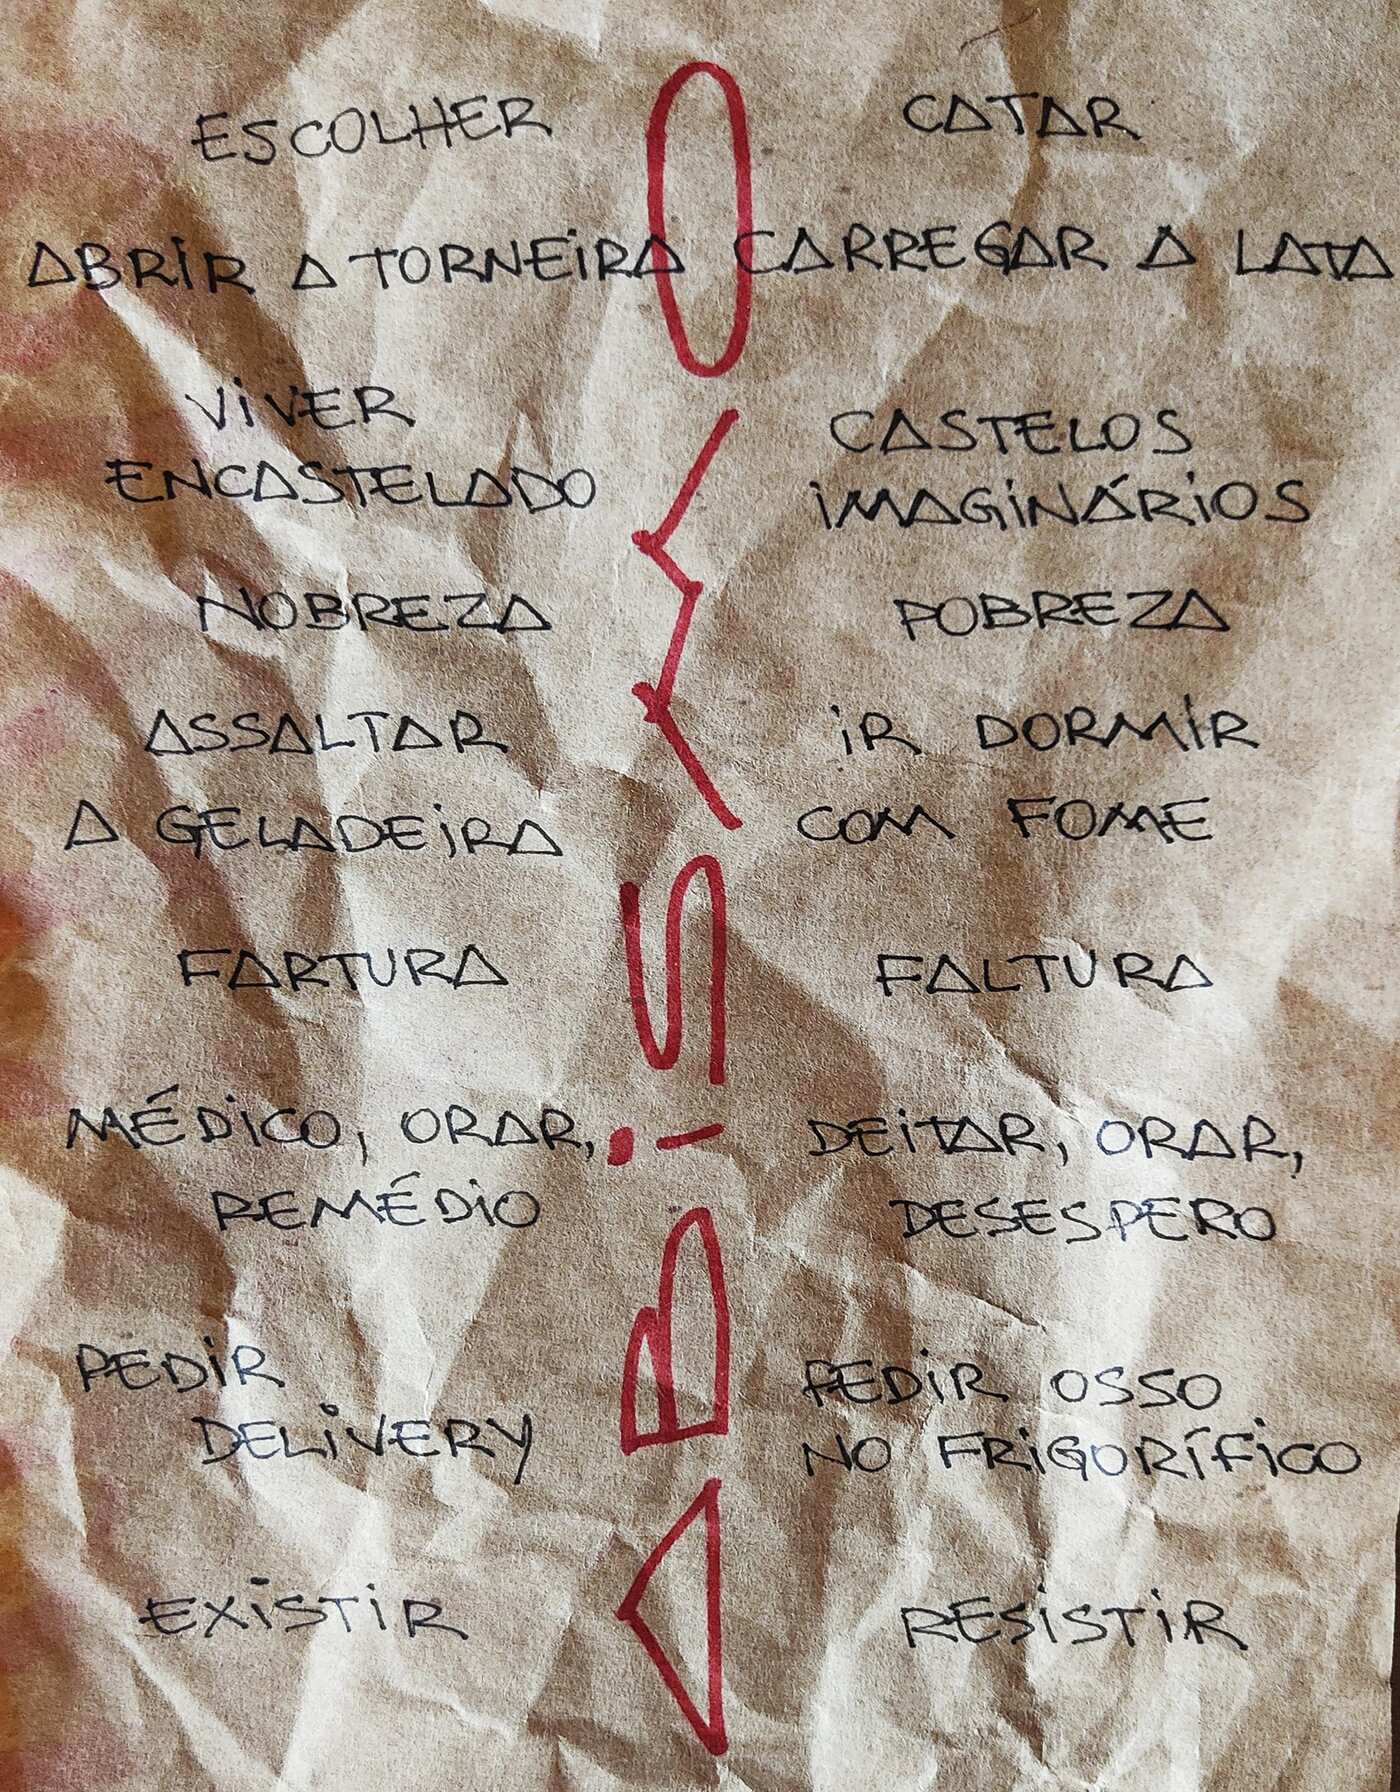 ESCOLHER
ABRIR A TORNEIRA
VIVER
ENCASTELADO
NOBREZA
ASSALTAR
A GELADEIRA
FARTURA
MÉDICO, ORAR,
REMÉDIO
PEDIR
DELIVERY
EXISTIR
ABISMO
CATAR
CARREGAR A LATA
CASTELOS
IMAGINÁRIOS
POBREZA
IR DORMIR
COM FOME
FALTURA
DEITAR, ORAR,
DESESPERO
PEDIR OSSO
NO FRIGORÍFICO
RESISTIR